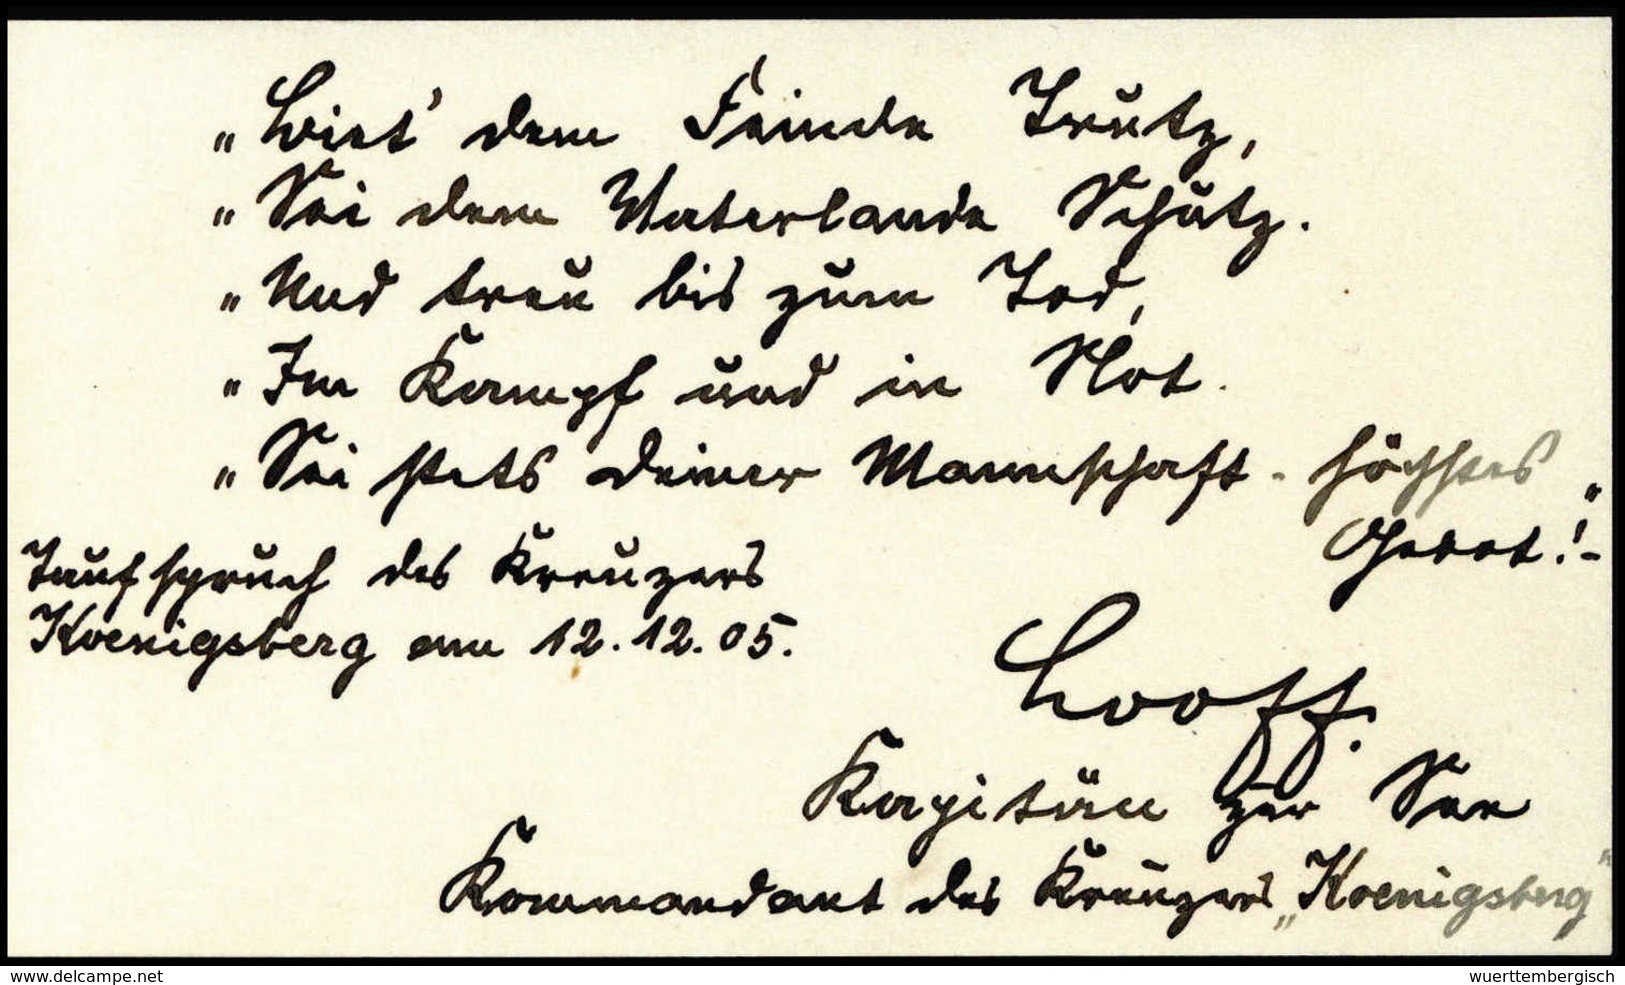 „Biet' dem Feinde Trutz,
„Sei dem Vaterlande Schutz.
„Und treu bis zum Tod,
„Im Kampf und in Not.
„Sei stets deiner Mannschaft - höchstes
Gebot!"-
Taufspruch des Kreuzers
Koenigsberg am 12.12.05.
Looff.
Kapitän zur See
Kommandant des Kreuzers „Koenigsberg"
www.delcampe.net
wuerttembergisch